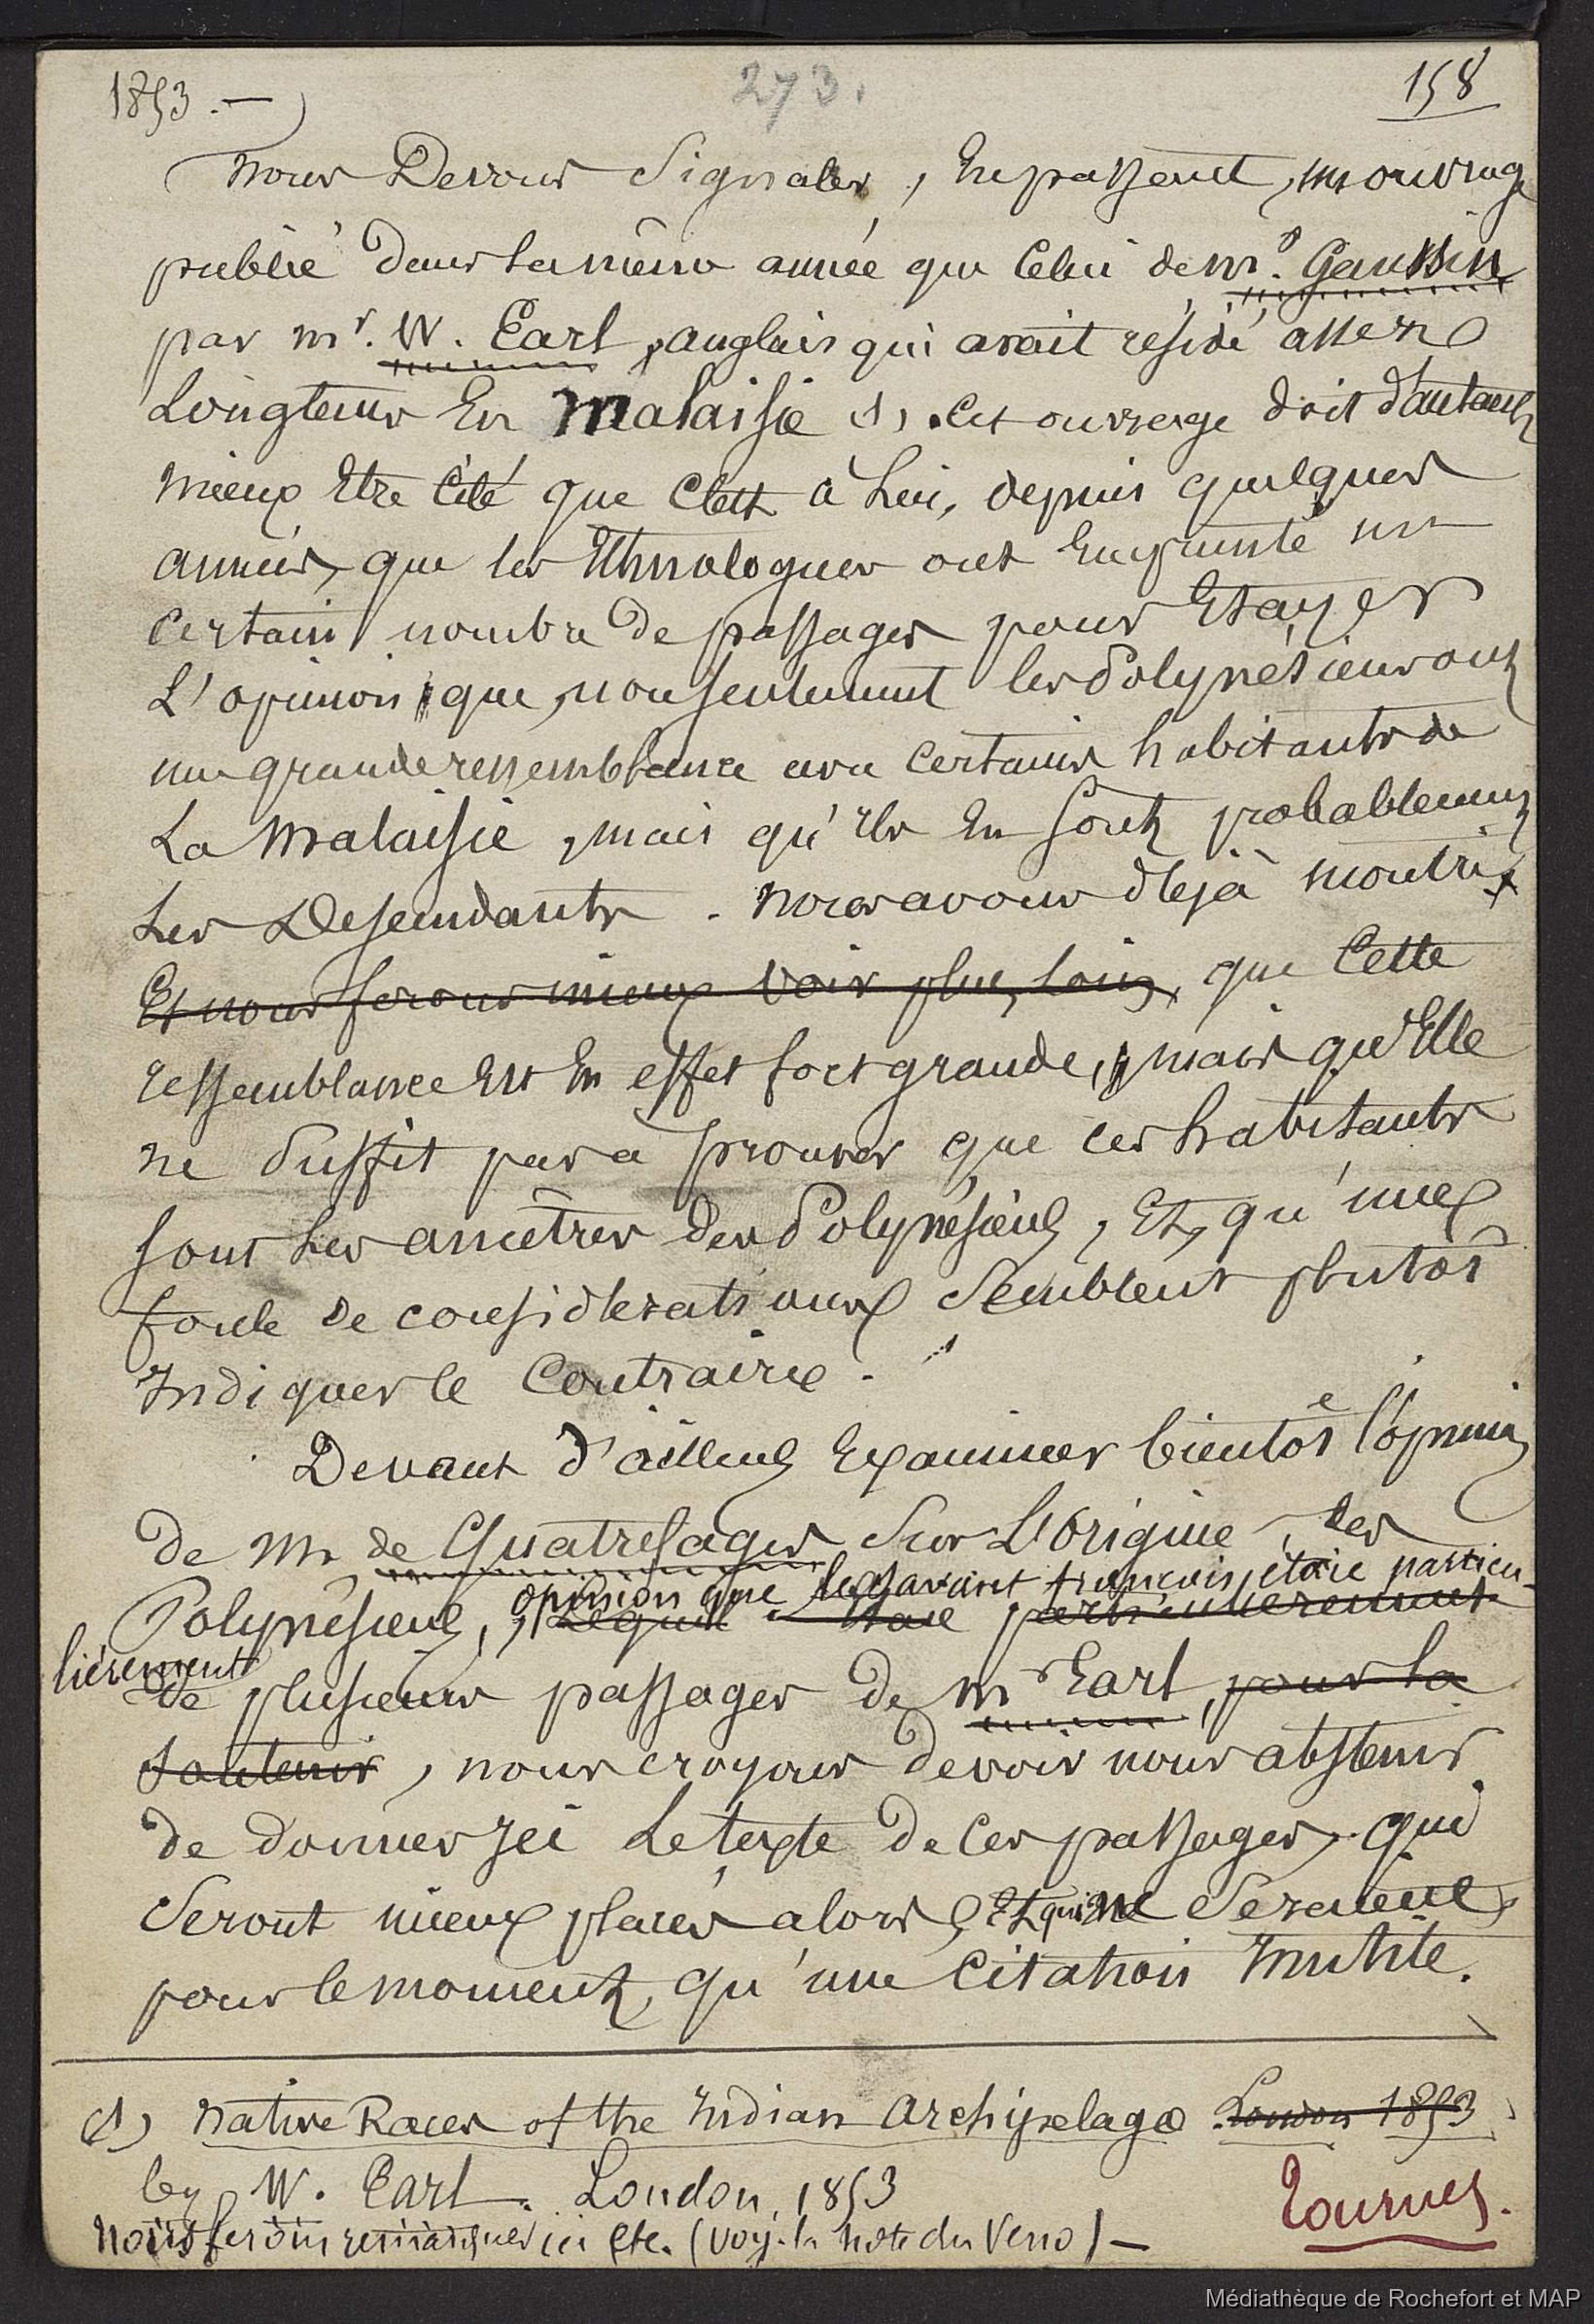 1853. —
273.
158
Nous Devons Signaler, En passant, un ouvrage
publié dans la même année que Celui de Mr. Gaussin
par Mr. W. Earl, anglais qui avait résidé assez
Longtems En Malaisie (1). Cet ouvrage doit d'autant
mieux Etre Cité que C'est à Lui, depuis quelques
années, que les Ethnologues ont Emprunté un
Certain nombre de passages pour Etayer
L'opinion que, non seulement les Polynésiens ont
une grande ressemblance avec Certains habitants de
La Malaisie, mais qu'Ils En sont probablement
Les Descendants. Nous avons déjà montré
Et nous ferons mieux voir plus loin, que Cette
ressemblance Est En effet fort grande, mais qu'Elle
ne Suffit pas à prouver que ces habitants
sont Les ancêtres des Polynésiens, Et, qu'une
foule de considérations Semblent plutôt
Indiquer le Contraire.
Devant d'ailleurs Examiner bientôt l'opinion
de Mr de Quatrefages Sur L'Origine des
opinion que le savant français étaie particu-
Polynésiens, Lequel étaie particulièrement
lièrement
de plusieurs passages de Mr Earl, pour la
soutenir, nous croyons devoir nous abstenir
de donner Ici Le texte de Ces passages, qui
Seront mieux placés alors, Et qui ne Seraient,
pour le moment, qu'une Citation Inutile.
(1) Native Races of the Indian Archipelago London 1853
by W. Earl. London, 1853
Nous ferons remarquer ici etc. (voy. la note du Verso) —
Tournez.
Médiathèque de Rochefort et MAP